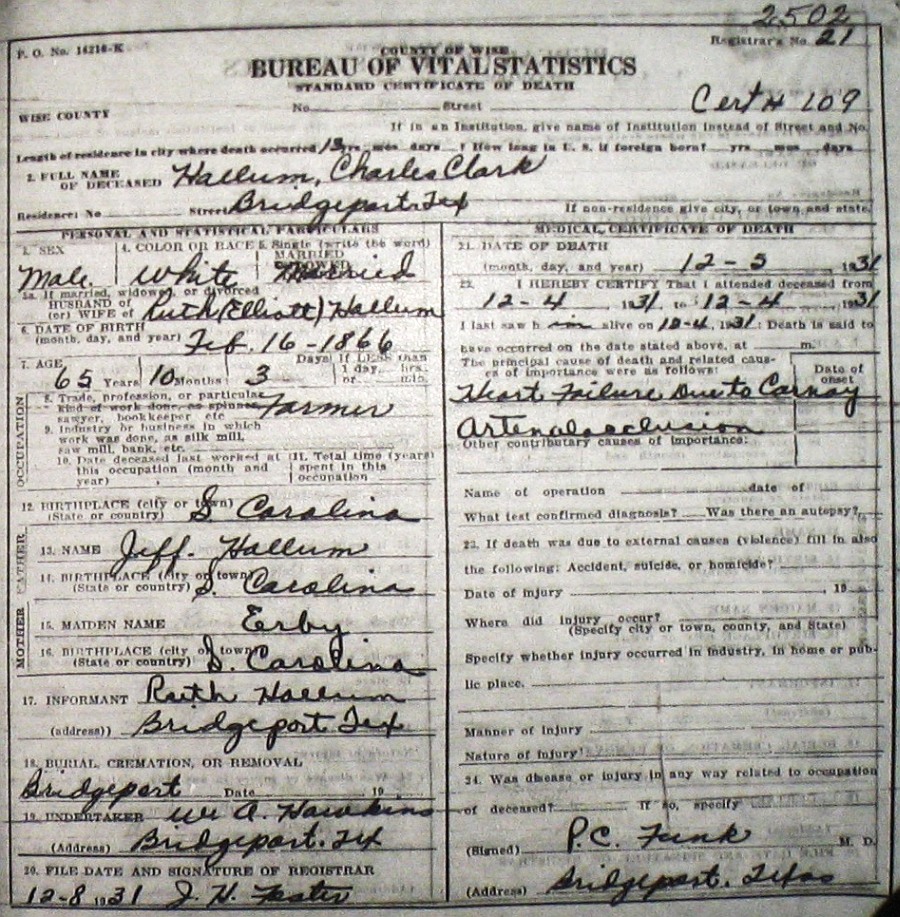 2502
P. O. No. 14216-K
COUNTY OF WISE
Registrar's No. 21
BUREAU OF VITAL STATISTICS
STANDARD CERTIFICATE OF DEATH
WISE COUNTY
No. Street
Cert # 109
If in an Institution, give name of Institution instead of Street and No.
Length of residence in city where death occurred yrs mos days ! How long in U. S. if foreign born? yrs mos days
2. FULL NAME OF DECEASED Hallum, Charles Clark
Residence: No Street Bridgeport Tex If non-residence give city, or town and state.
PERSONAL AND STATISTICAL PARTICULARS
3. SEX 4. COLOR OR RACE 5. Single (write the word)
MARRIED
Male White Married
5a. If married, widowed, or divorced
HUSBAND of
(or) WIFE of Ruth (Elliott) Hallum
6. DATE OF BIRTH
(month, day, and year) Feb. 16-1866
7. AGE Days If LESS than
1 day, hrs.
65 Years 10 Months 3 or min.
OCCUPATION
8. Trade, profession, or particular
kind of work done, as spinner, Farmer
sawyer, bookkeeper etc
9. Industry or business in which
work was done, as silk mill,
saw mill, bank, etc.
10. Date deceased last worked at this occupation (month and year)
11. Total time (years) spent in this occupation
12. BIRTHPLACE (city or town)
(State or country) S. Carolina
FATHER
13. NAME Jeff. Hallum
14. BIRTHPLACE (city or town)
(State or country) S. Carolina
MOTHER
15. MAIDEN NAME Erby
16. BIRTHPLACE (city or town)
(State or country) S. Carolina
17. INFORMANT Ruth Hallum
(address)) Bridgeport Tex
18. BURIAL, CREMATION, OR REMOVAL
Bridgeport Date 19
19. UNDERTAKER A. Hawkins
(Address) Bridgeport. Tex
20. FILE DATE AND SIGNATURE OF REGISTRAR
12-8 1931 J. H. Foster
MEDICAL CERTIFICATE OF DEATH
21. DATE OF DEATH
(month, day, and year) 12-5 1931
22. I HEREBY CERTIFY That I attended deceased from
12-4 1931 to 12-4 1931
I last saw h im alive on 12-4, 1931: Death is said to
have occurred on the date stated above, at m.
The principal cause of death and related causes of importance were as follows:
Date of onset
Heart Failure Due to Cornay
Arterial occlusion
Other contributary causes of importance:
Name of operation date of
What test confirmed diagnosis? Was there an autopsy?
23. If death was due to external causes (violence) fill in also
the following: Accident, suicide, or homicide?
Date of injury 19
Where did injury occur?
(Specify city or town, county, and State)
Specify whether injury occurred in industry, in home or pub-
lic place.
Manner of injury
Nature of injury
24. Was disease or injury in any way related to occupation
of deceased? If so, specify
(Signed) P.C. Funk M. D.
(Address) Bridgeport. Texas